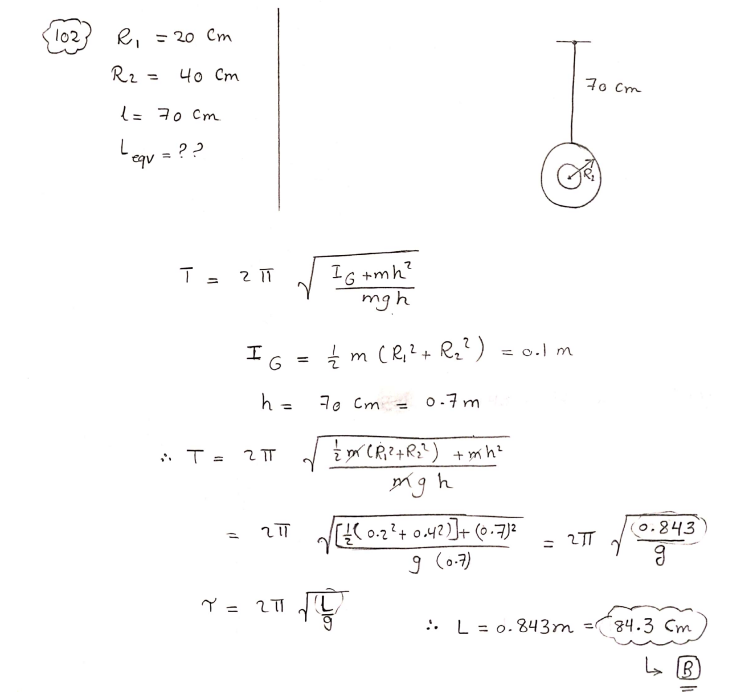 102 R₁ = 20 Cm
R₂ = 40 Cm
l = 70 Cm
L eqv = ??
70 cm
R₂
T = 2π √((I_G + mh²)/(mgh))
I_G = ½ m (R₁² + R₂²) = 0.1 m
h = 70 Cm = 0.7m
∴ T = 2π √((½ m (R₁² + R₂²) + mh²)/(mgh))
= 2π √(([½(0.2² + 0.4²)] + (0.7)²)/(g (0.7))) = 2π √(0.843/g)
T = 2π √(L/g)
∴ L = 0.843m = 84.3 Cm
↳ B